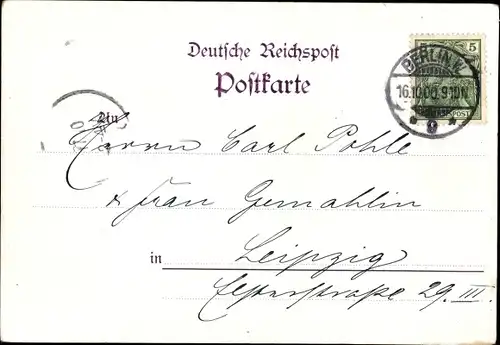 Deutsche Reichspost
Postkarte
5
BERLIN W.
16.10.00. 9-10N.
9
An
Herrn Carl Pohle
& Frau Gemahlin
in Leipzig
Elsterstraße 29. III.